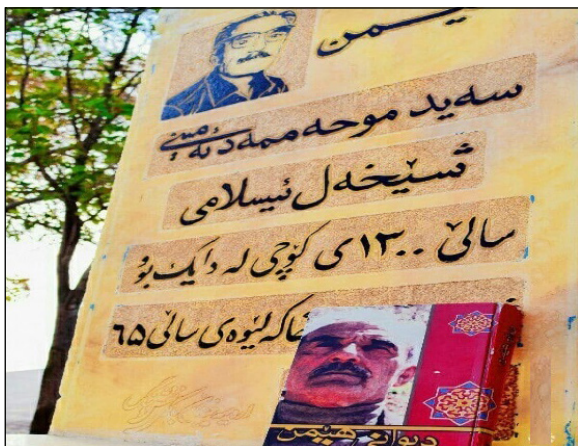 یمن
سەید موحەممەد ئەمینی
شێخەل ئیسلامی
سالێ ١٣٠٠ ی کۆچی لە دایک بوو
لێوەی سالێ ٦٥
دیوانی هێمن